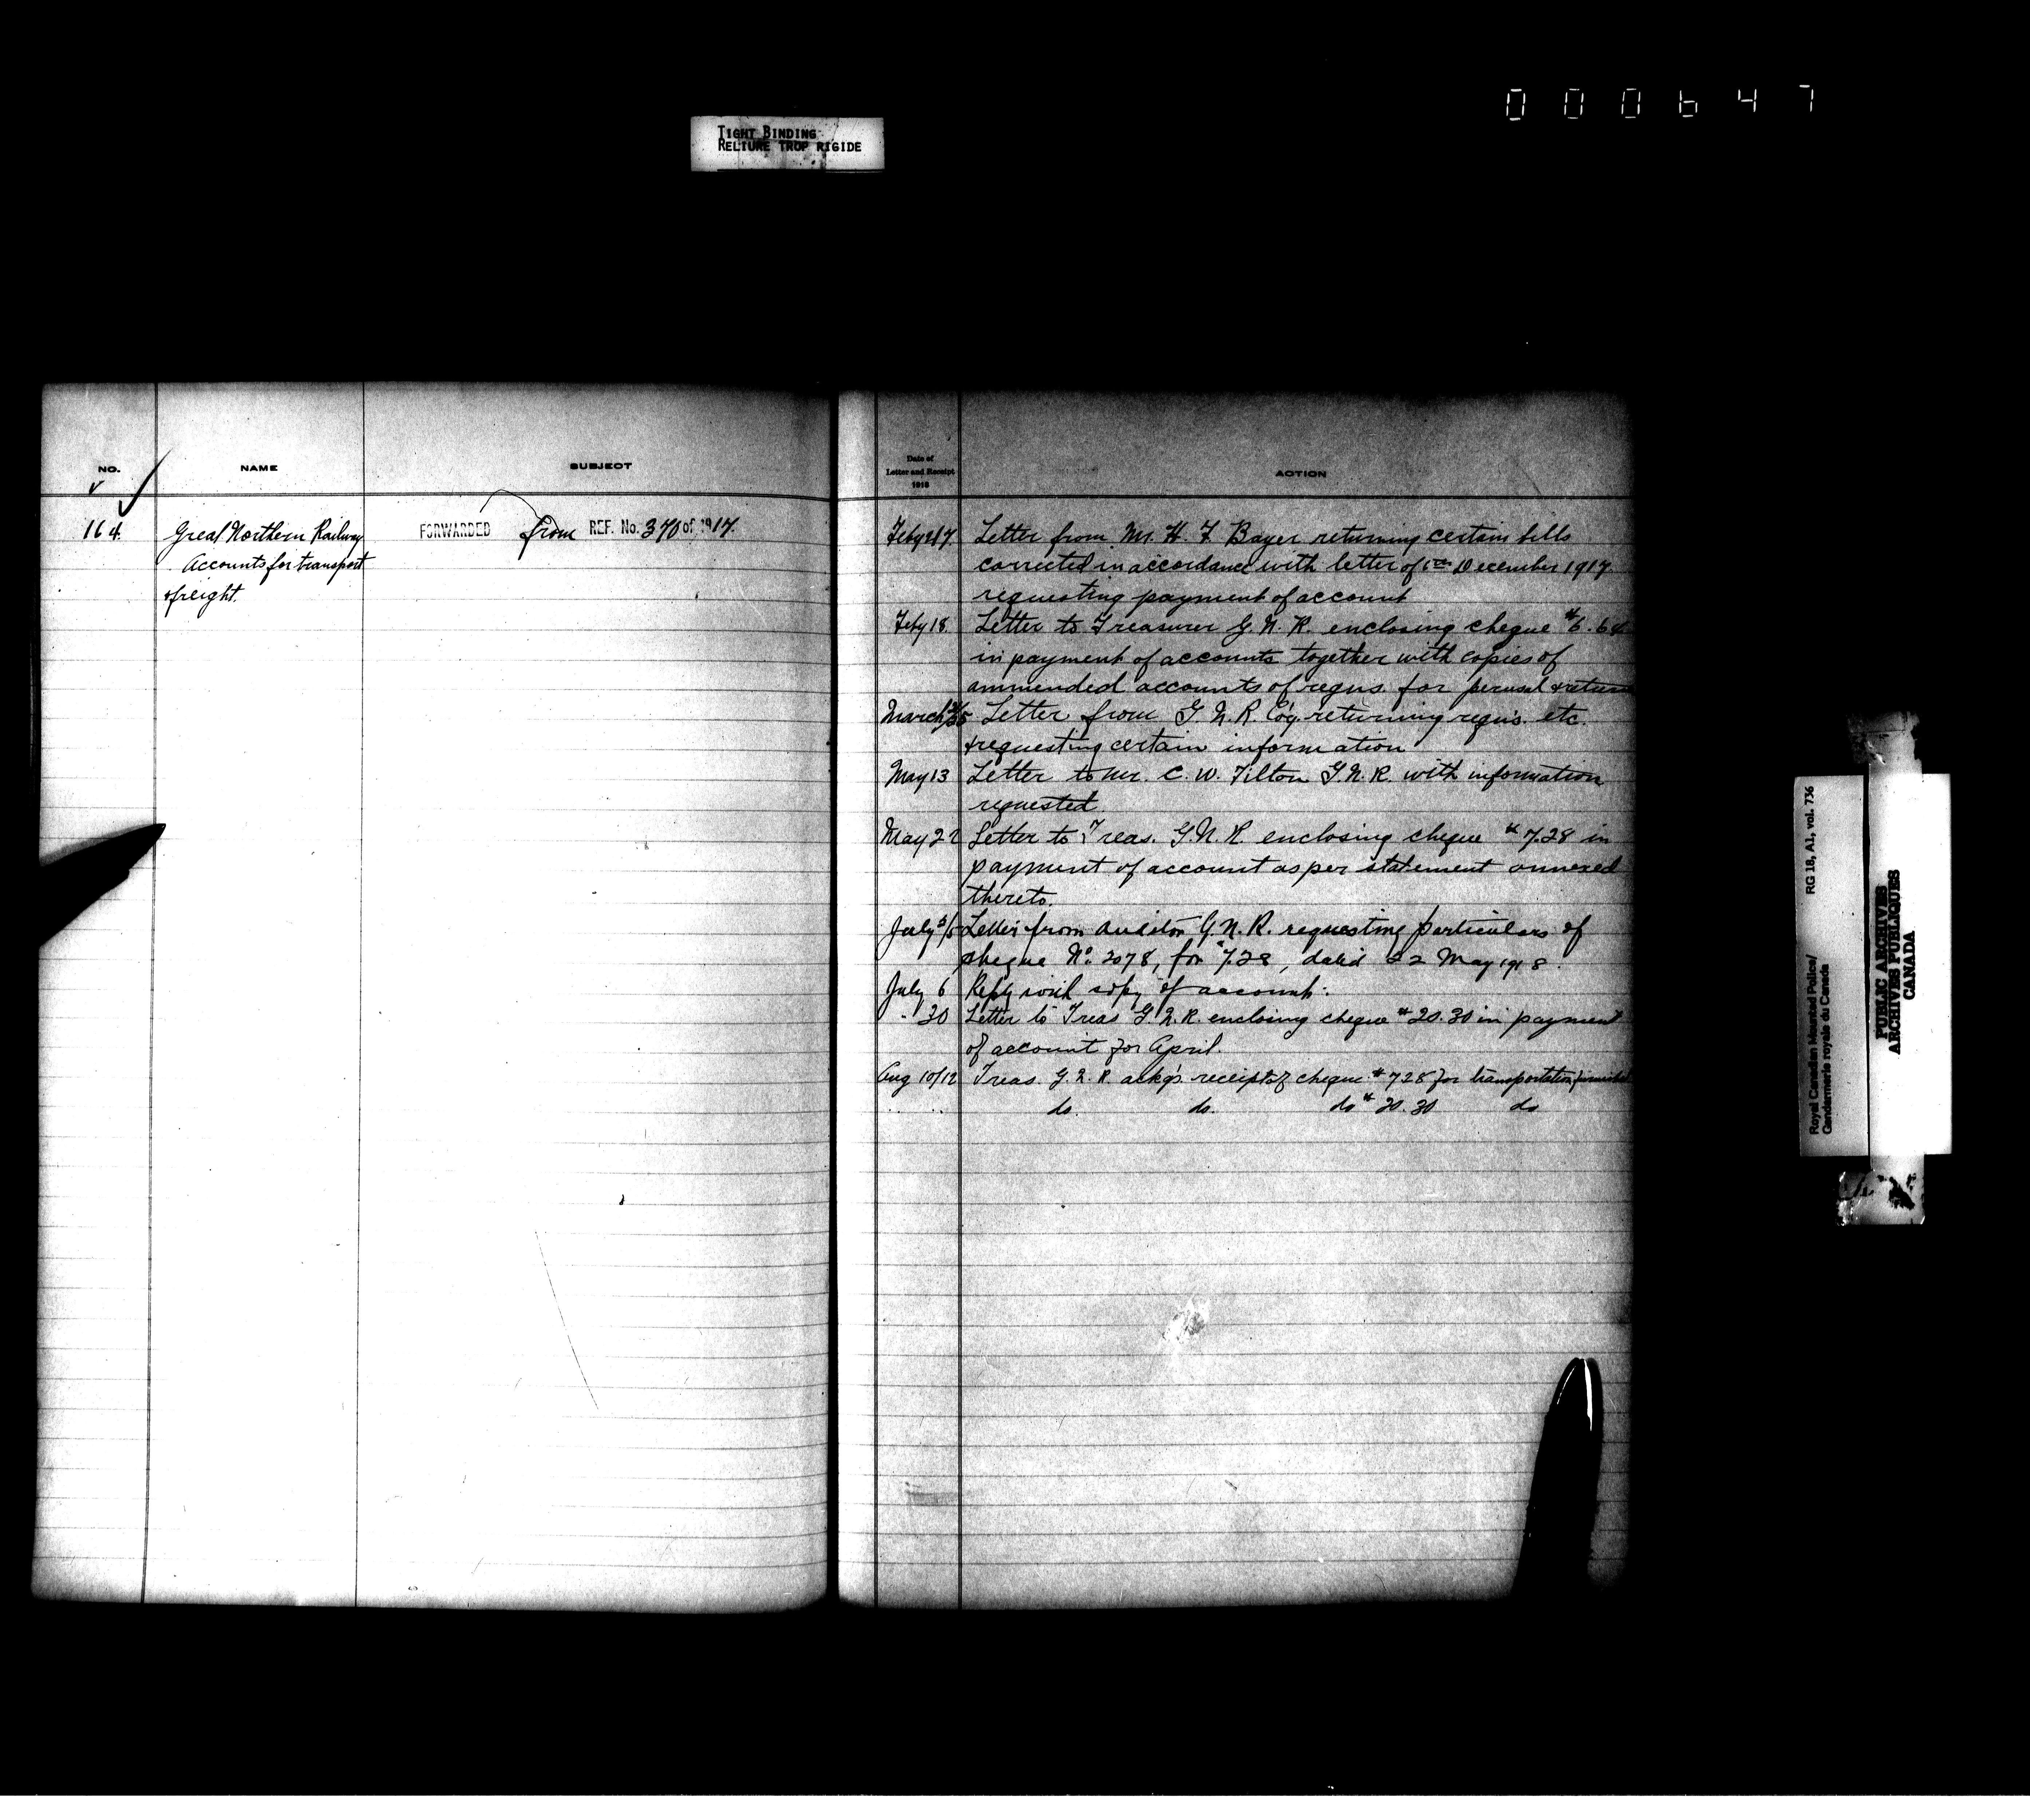 000647
TIGHT BINDING
RELIURE TROP RIGIDE
NO.
NAME
SUBJECT
164.
Great Northern Railway
Accounts for transport
& freight.
FORWARDED from REF. No. 370 of 1917.
Date of
Letter and Receipt
1918
ACTION
Feby 2/7. Letter from Mr. H. F. Bayer returning certain bills
corrected in accordance with letter of December 1917
requesting payment of account
Feby 18. Letter to Treasurer G. N. R. enclosing cheque $6.64
in payment of accounts together with copies of
ammended accounts of reqns. for perusal & return
March Letter from G. N. R. Coy. returning reqn's. etc.
& requesting certain information
May 13 Letter to Mr. C. W. Tilton G. N. R. with information
requested.
May 22 Letter to Treas. G. N. R. enclosing cheque $7.28 in
payment of account as per statement annexed
thereto.
July 3/5 Letter from Auditor G. N. R. requesting particulars of
cheque No. 2078, for $7.28, dated 22 May 1918.
July 6 Reply with copy of account.
" 30 Letter to Treas G. N. R. enclosing cheque $20.30 in payment
of account for April.
Aug 10/12 Treas. G. N. R. ackg's receipt of cheque $7.28 for transportation furnished
" " do. do. do $20.30 do
Royal Canadian Mounted Police/
Gendarmerie royale du Canada
RG 18, A1, vol. 736
PUBLIC ARCHIVES
ARCHIVES PUBLIQUES
CANADA